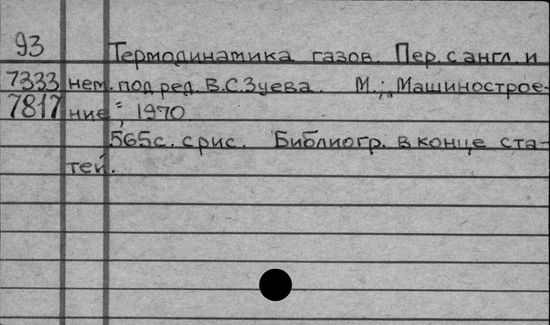 93 Термодинамика газов. Пер. с англ. и
7333 нем. под ред. В.С.Зуева. М., „Машинострое-
7817 ние“, 1970
565с. с рис. Библиогр. в конце ста-
тей.